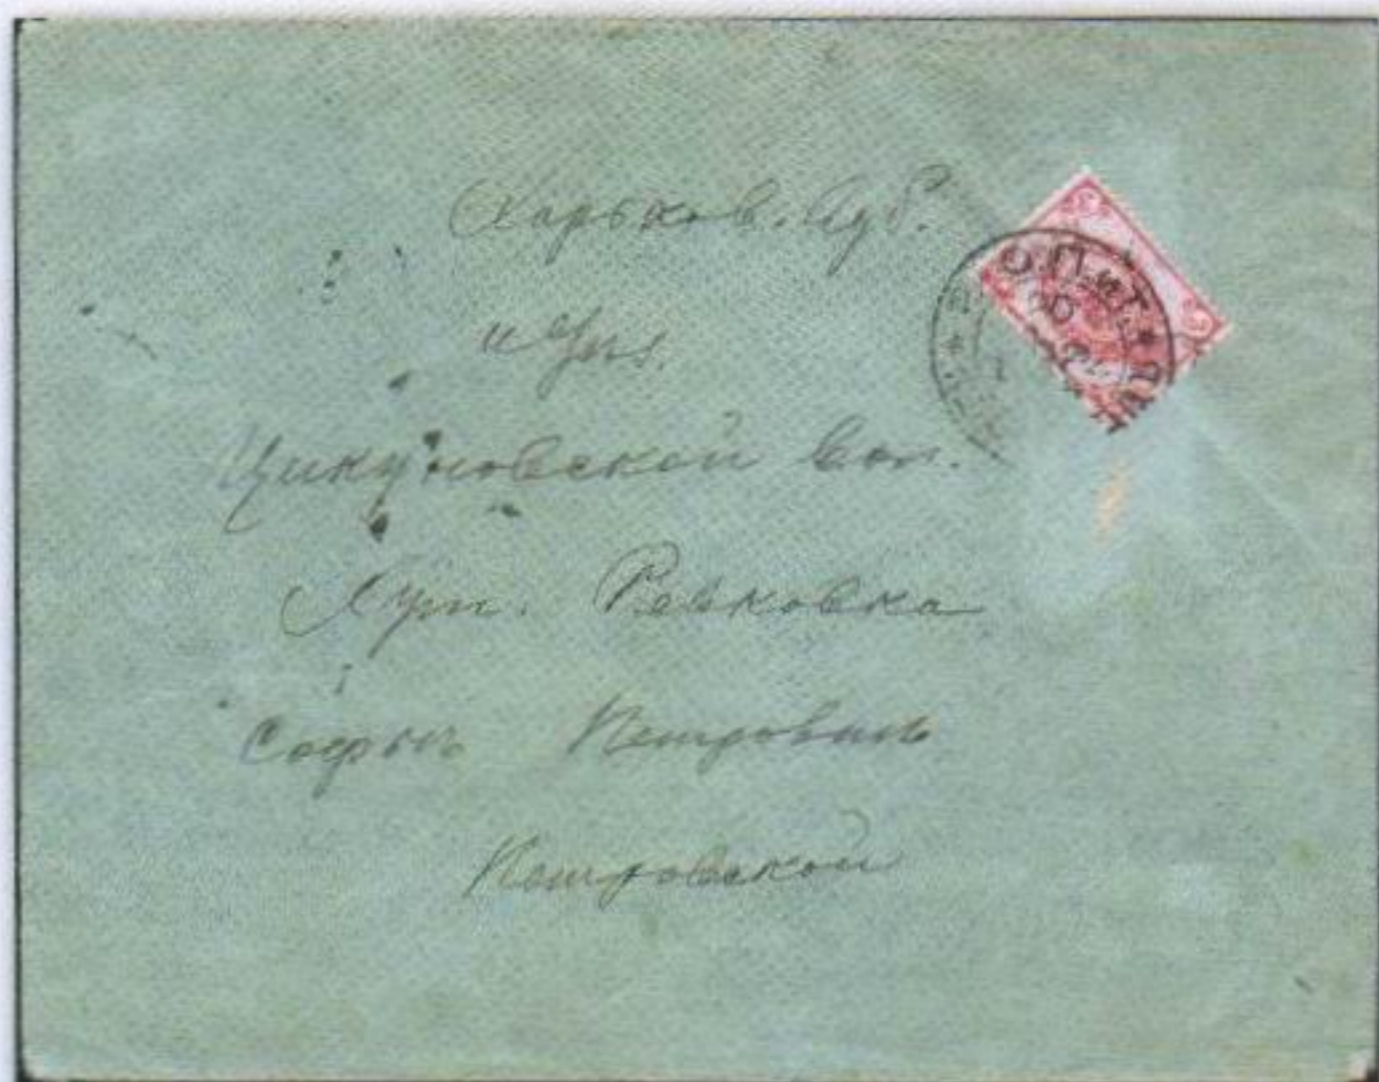 Харьков. Губ.
и Уѣз.
Циркуновской вол.
Хут. Ревковка
Софьѣ Петровнѣ
Петровской
П. и Т.
3
3